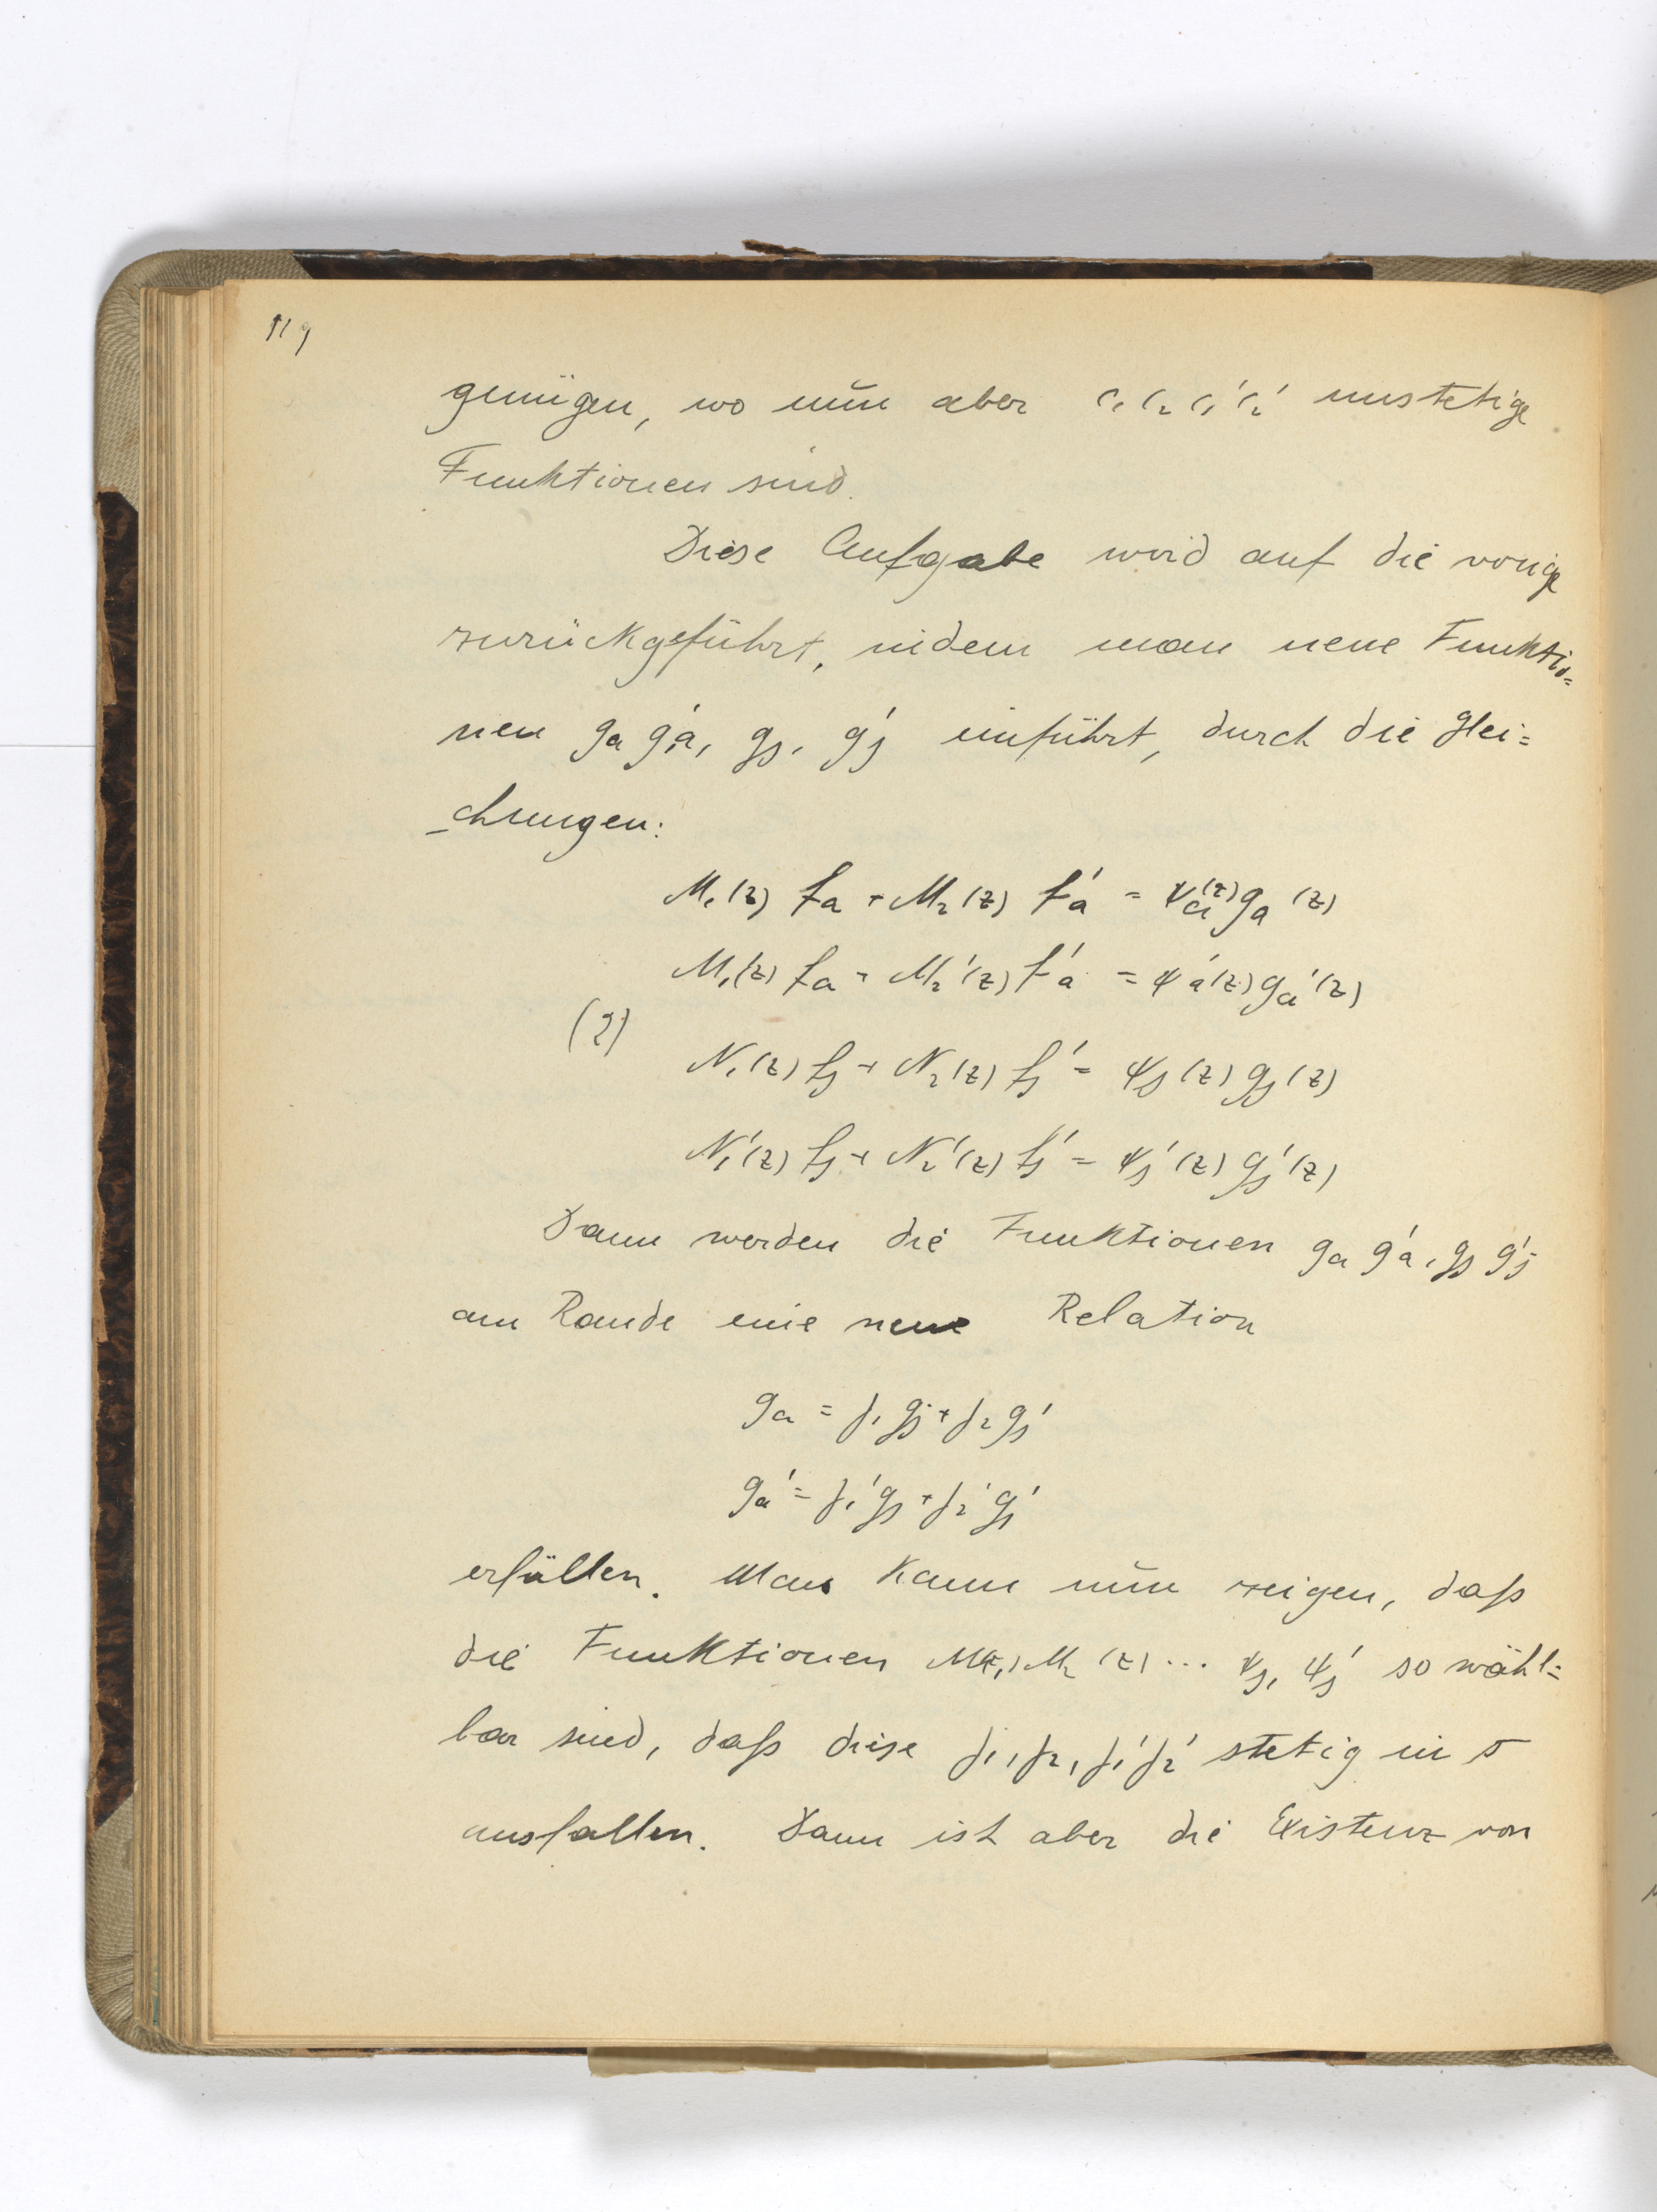 119
genügen, wo nun aber c₁ c₂ c₁' c₂' unstetige
Funktionen sind.
Diese Aufgabe wird auf die vorige
zurückgeführt, indem man neue Funktio=
nen ga g'a, gj, g'j einführt, durch die Glei=
chungen:
M₁(z) fa + M₂(z) f'a = ψa(z) ga(z)
M₁'(z) fa + M₂'(z) f'a = ψ'a(z) ga'(z)
(2)
N₁(z) fj + N₂(z) fj' = ψj(z) gj(z)
N₁'(z) fj + N₂'(z) fj' = ψj'(z) gj'(z)
Dann werden die Funktionen ga g'a, gj g'j
am Rande eine neue Relation
ga = γ₁ gj + γ₂ gj'
ga' = γ₁' gj + γ₂' gj'
erfüllen. Man kann nun zeigen, daß
die Funktionen M₁(z) M₂(z) ... ψj, ψj' so wähl=
bar sind, daß diese γ₁, γ₂, γ₁' γ₂' stetig in σ
ausfallen. Dann ist aber die Existenz von